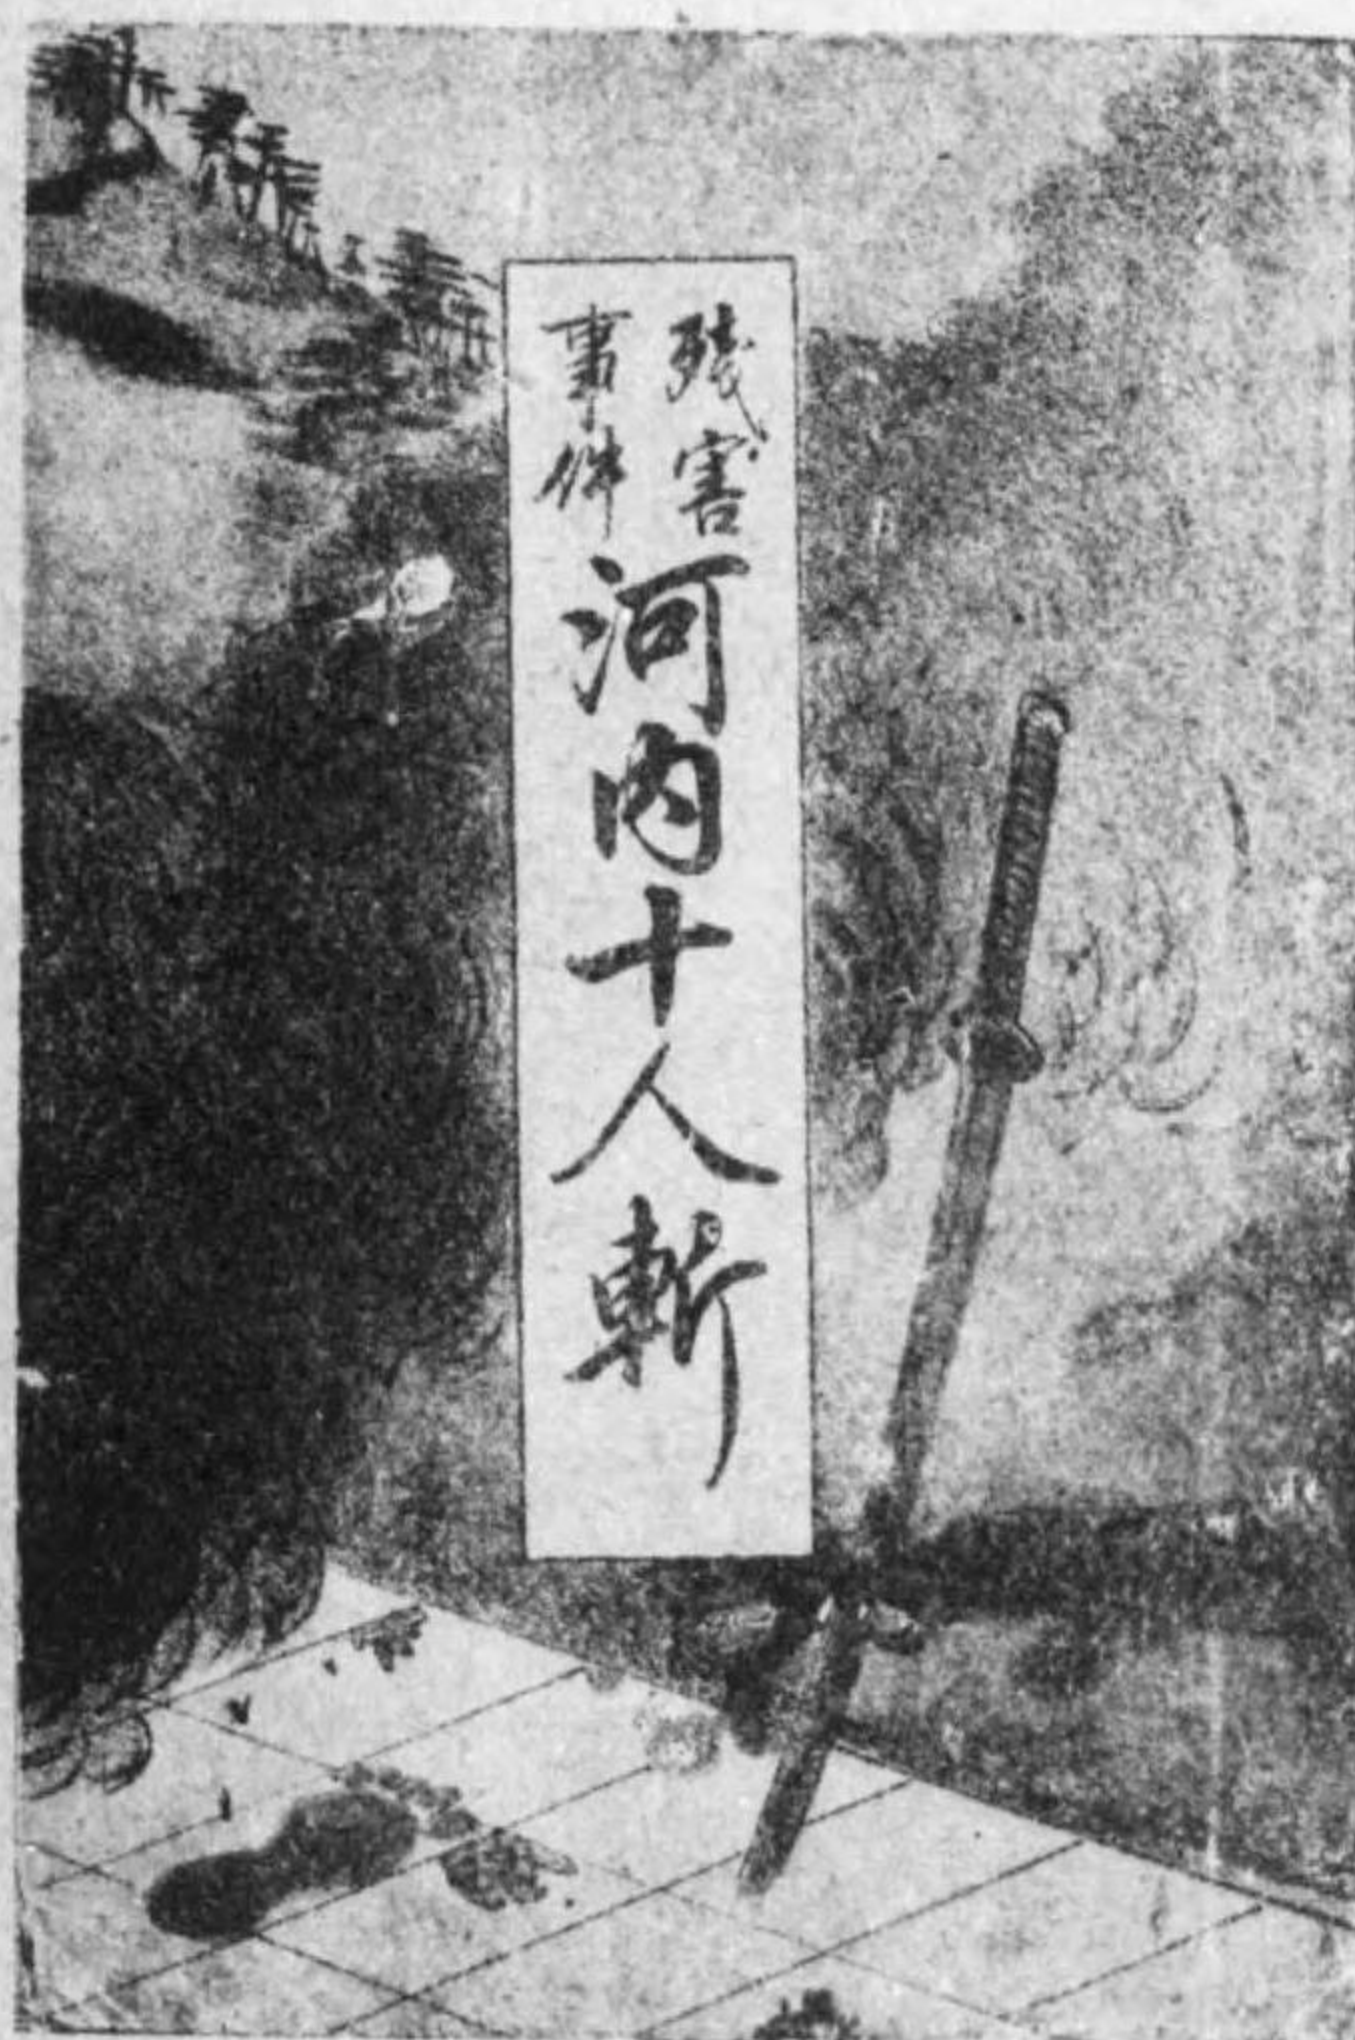 残害
事件
河内十人斬